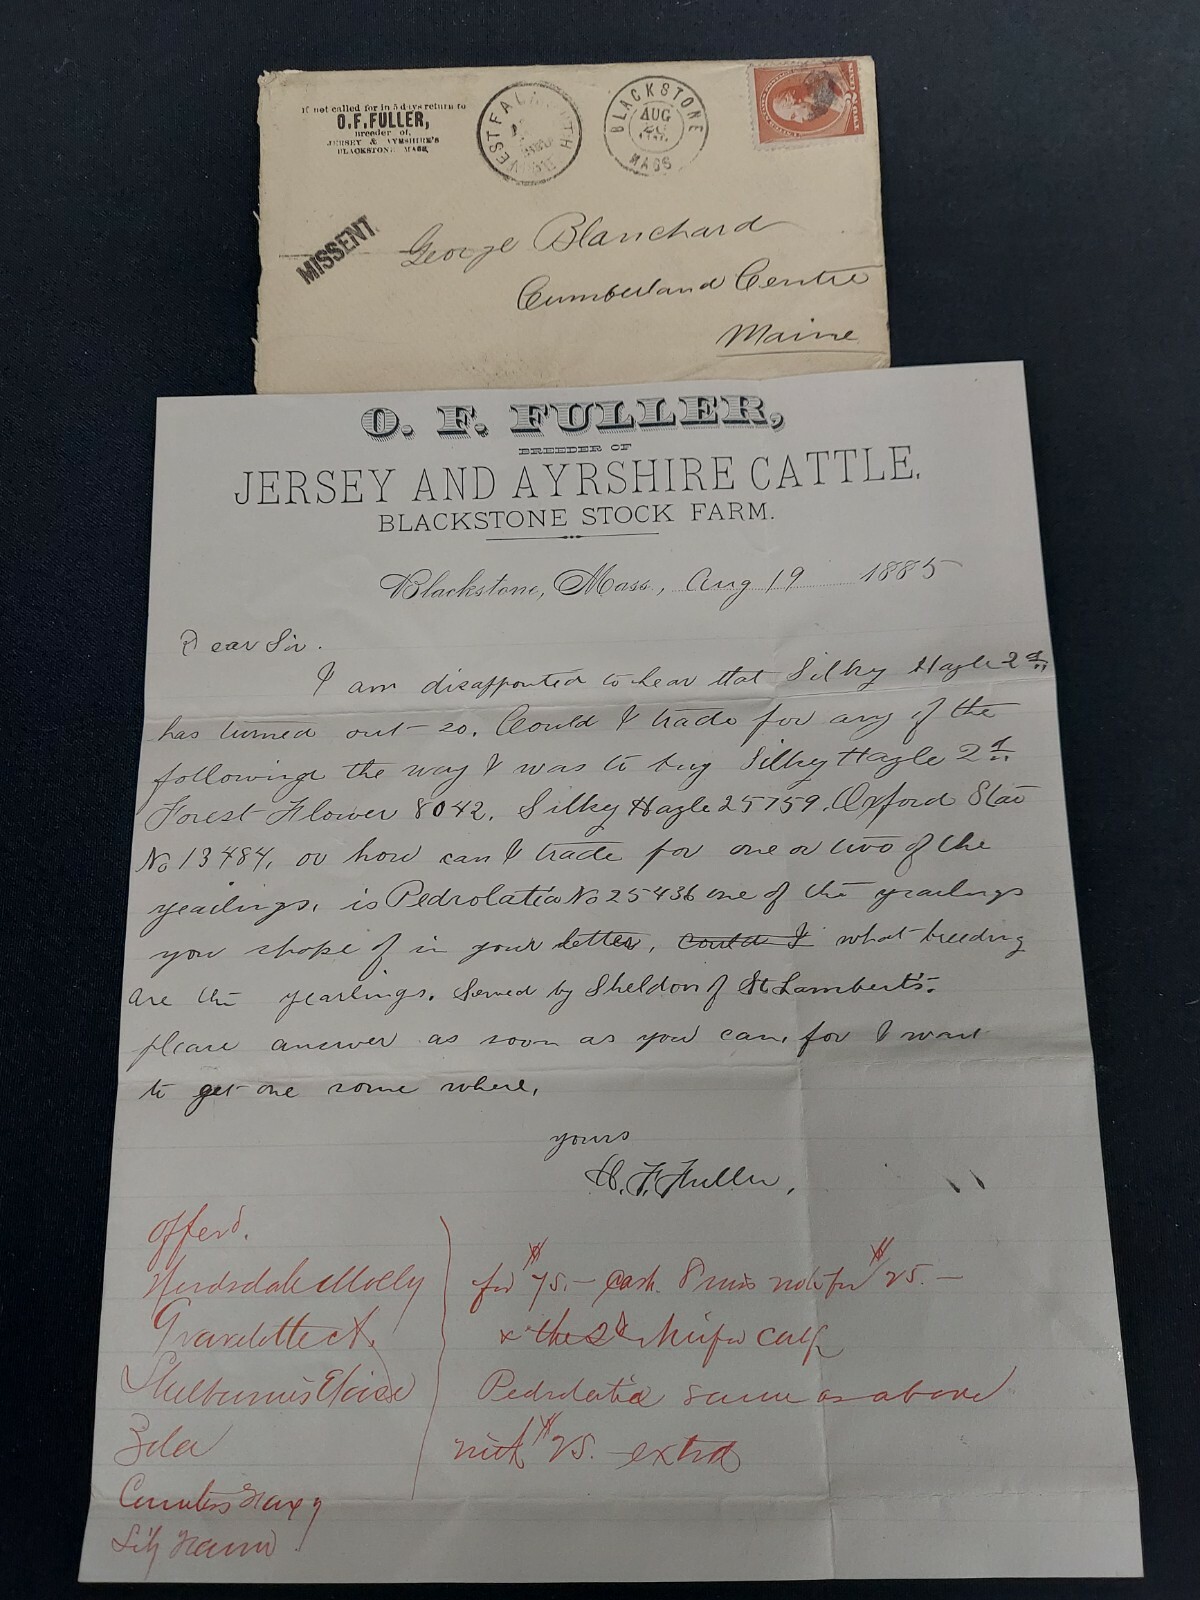 If not called for in 5 days return to
O. F. FULLER,
Breeder of,
JERSEY & AYRSHIRE'S
BLACKSTONE MASS
WEST FALMOUTH
BLACKSTONE
AUG
MASS
MISSENT.
George Blanchard
Cumberland Centre
Maine
O. F. FULLER,
BREEDER OF
JERSEY AND AYRSHIRE CATTLE.
BLACKSTONE STOCK FARM.
Blackstone, Mass., Aug 19 1885
Dear Sir.
I am disappointed to hear that Silky Hazle 2d
has turned out so. Could I trade for any of the
following the way I was to buy Silky Hazle 2d
Forest Flower 8042. Silky Hazle 25759. Oxford Star
No 13484, or how can I trade for one or two of the
yearlings. is Pedrolatia No 25436 one of the yearlings
you shope of in your letter, could I what breeding
are the yearlings. Served by Sheldon of St Lamberts.
please answer as soon as you can, for I want
to get one some where.
yours
O. F. Fuller,
offerd.
Molly
for $75.- cash 8 mos note for $25.-
the 2d heifer calf
Pedrolatia same as above
with $25. extra